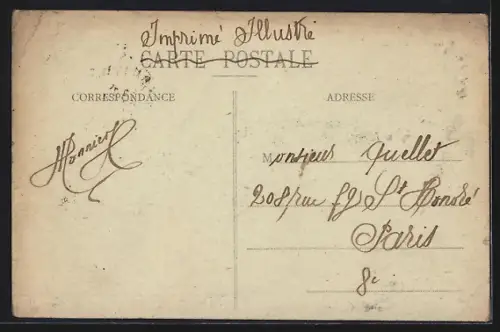 Imprimé Illustré
CARTE POSTALE
CORRESPONDANCE
ADRESSE
Monsieur Quellet
208 rue fg St Honoré
Paris
8e